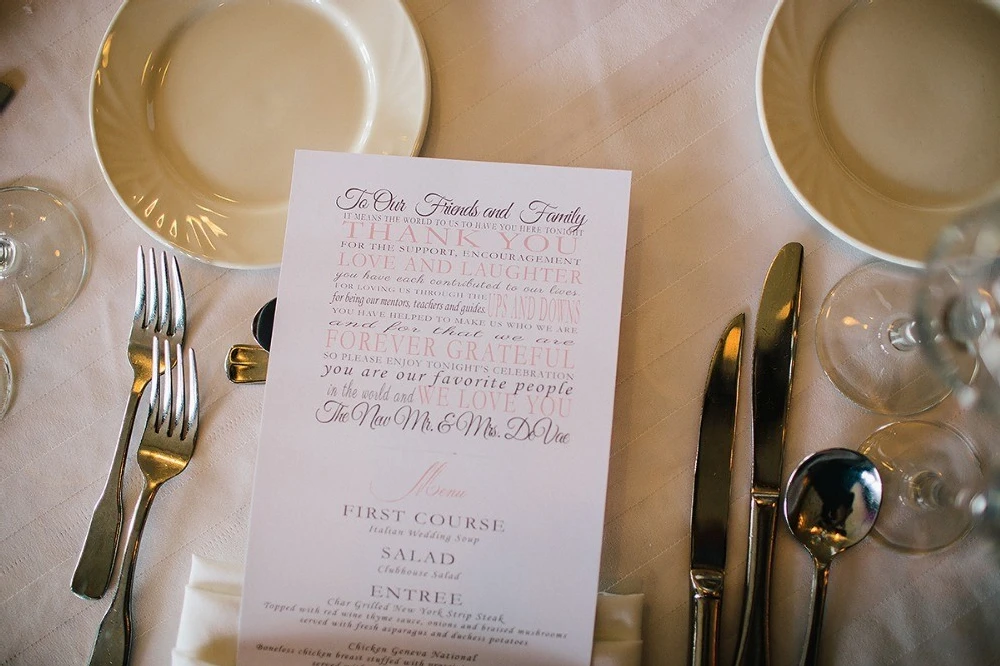 To Our Friends and Family
IT MEANS THE WORLD TO US TO HAVE YOU HERE TONIGHT
THANK YOU
FOR THE SUPPORT, ENCOURAGEMENT
LOVE AND LAUGHTER
you have each contributed to our lives.
FOR LOVING US THROUGH THE UPS AND DOWNS
for being our mentors, teachers and guides.
YOU HAVE HELPED TO MAKE US WHO WE ARE
and for that we are
FOREVER GRATEFUL
SO PLEASE ENJOY TONIGHT'S CELEBRATION
you are our favorite people
in the world and WE LOVE YOU
The New Mr. & Mrs. DeVae
Menu
FIRST COURSE
Italian Wedding Soup
SALAD
Clubhouse Salad
ENTREE
Char Grilled New York Strip Steak
Topped with red wine thyme sauce, onions and braised mushrooms
served with fresh asparagus and duchess potatoes
Chicken Geneva National
Boneless chicken breast stuffed with